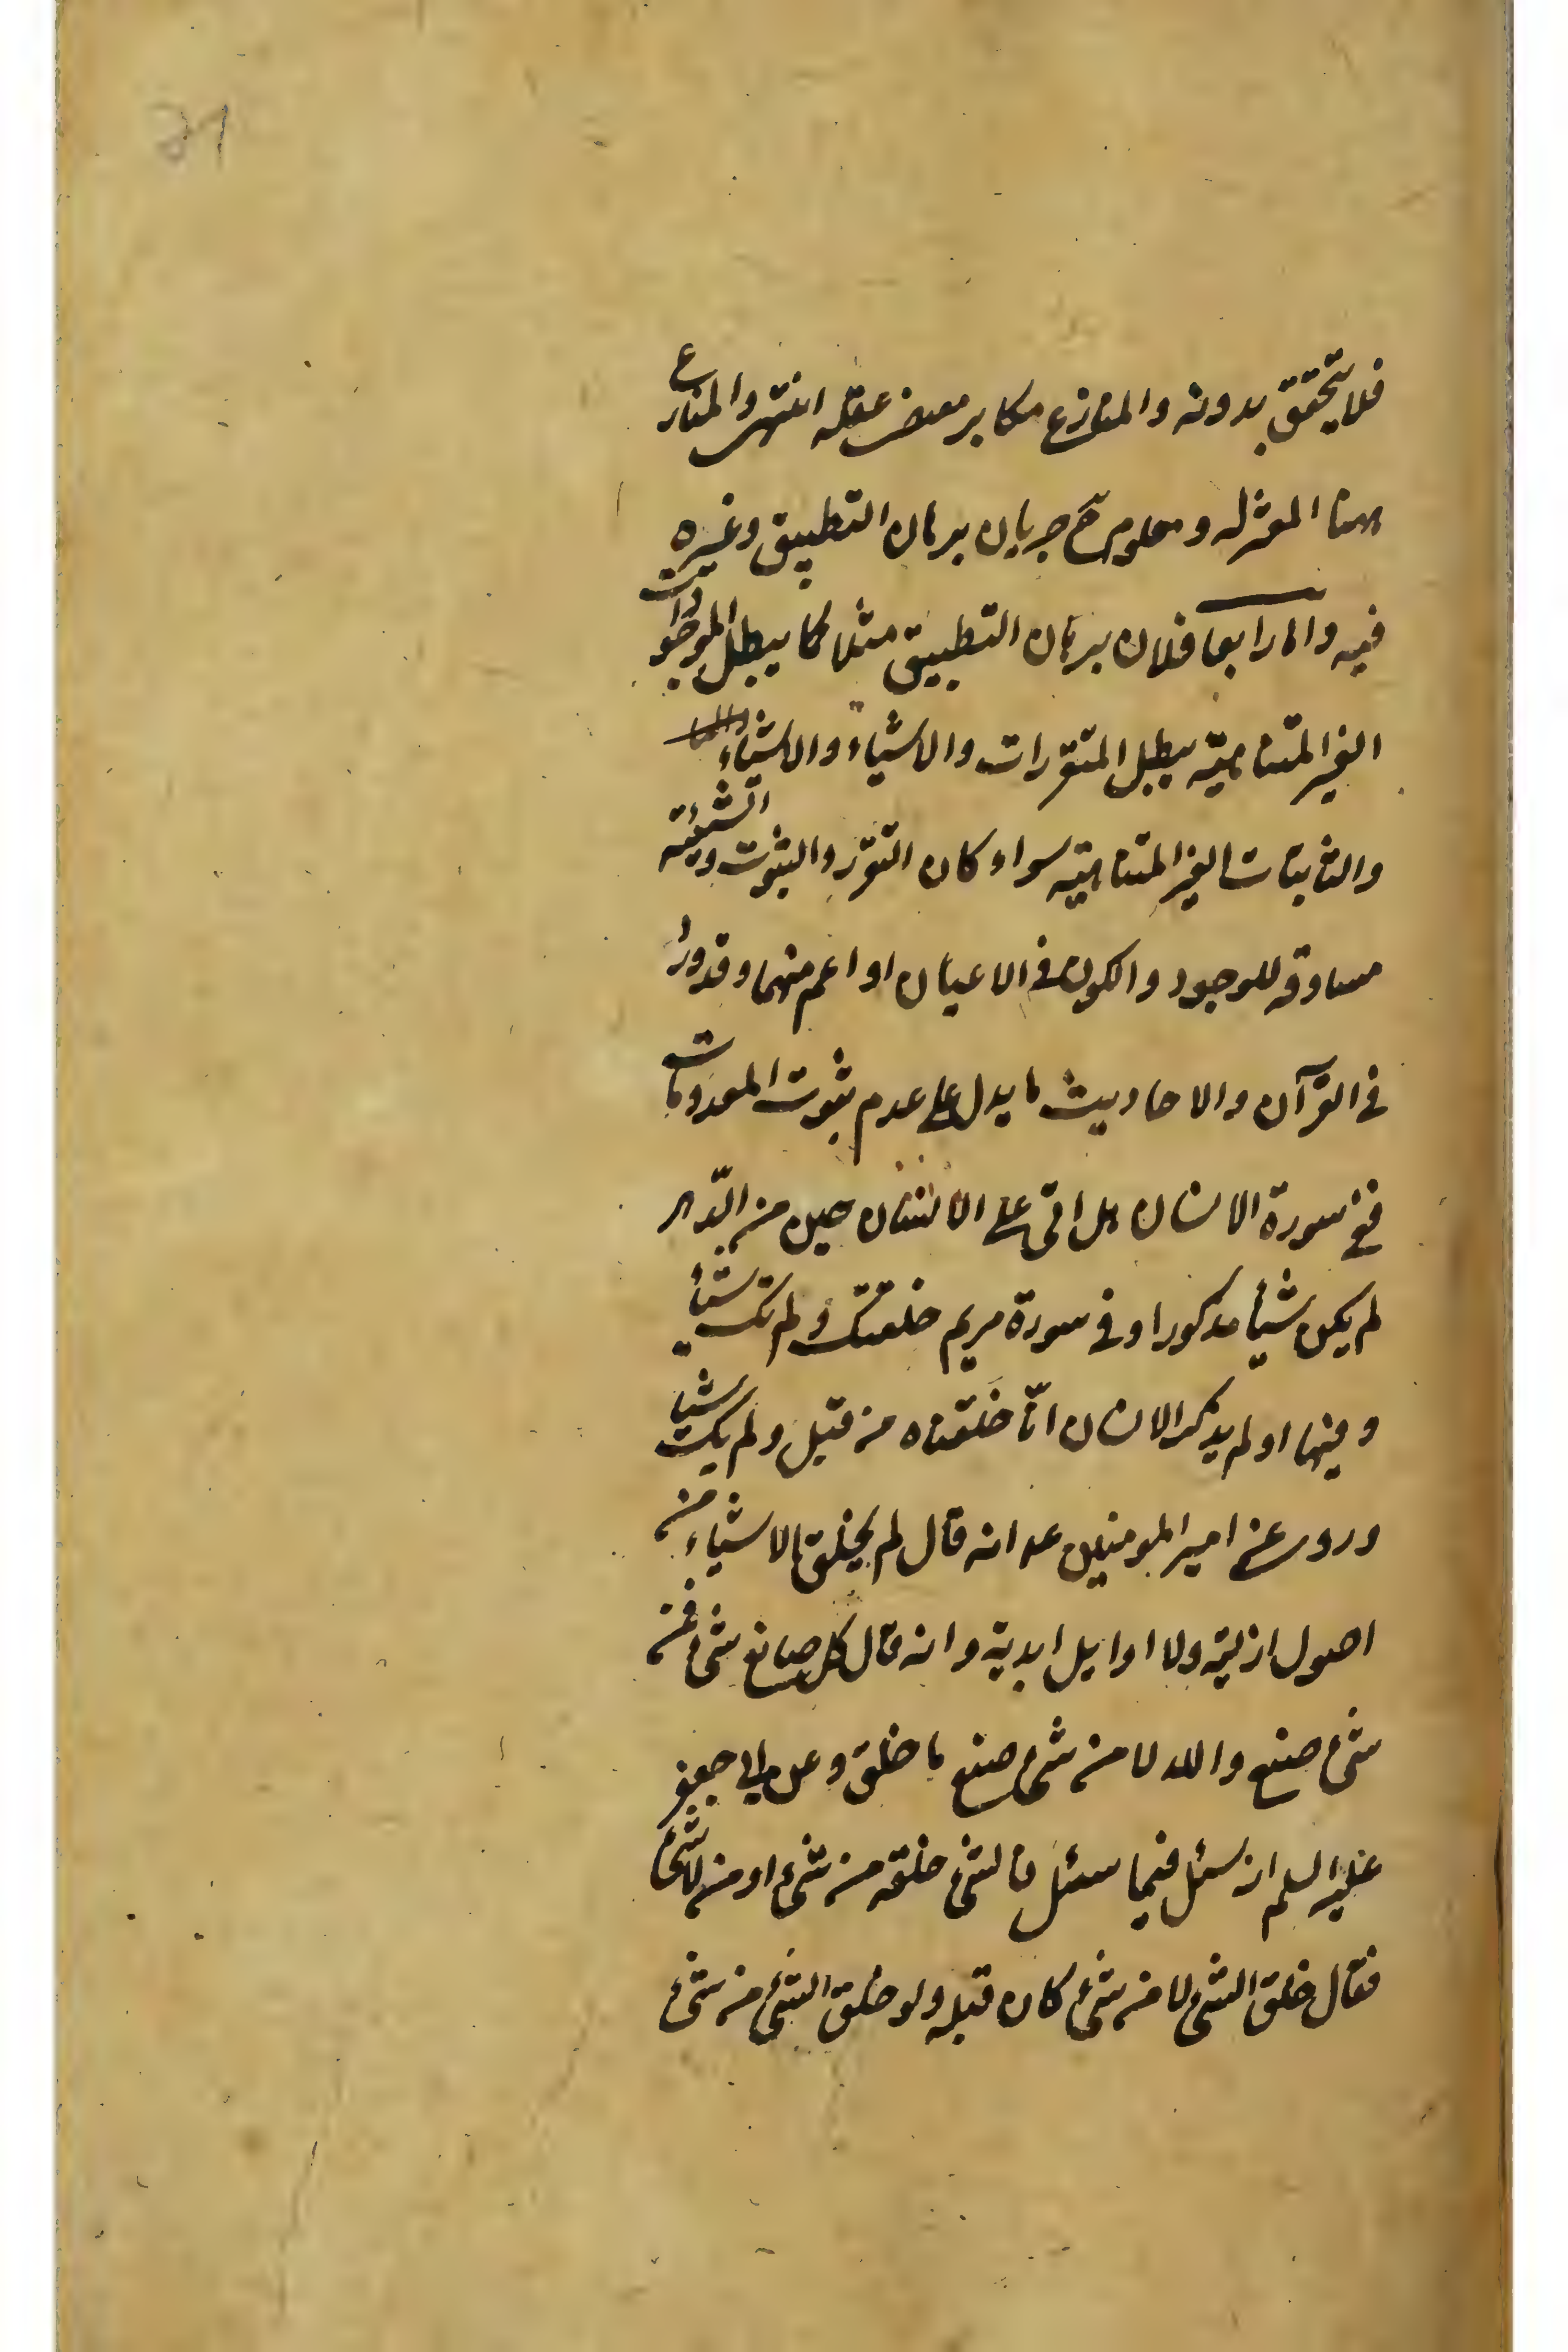 21
فلا يتحقق بدونه والمنازع مكابر مقتضى عقله انتهى والمنازع
ههنا المعتزله ومعلوم ح جريان برهان التطبيق وغيره
فيه واما رابعا فلان برهان التطبيق مثلا كما يبطل الموجودات
الغير المتناهيه يبطل المتقررات والاشياء والاشياء
والثابتات الغير المتناهيه سواء كان التقرر والثبوت والشيئيه
مساوقه للوجود والكون في الاعيان او اعم منهما وقد ورد
في القرآن والاحاديث ما يدل على عدم ثبوت المعدومات
ففي سورة الانسان هل اتى على الانسان حين من الدّهر
لم يكن شيأ مذكورا وفي سورة مريم خلقتك ولم تك شيأ
وفيها اولم يذكر الانسان انّا خلقناه من قبل ولم يك شيأ
وروى عن امير المومنين عه انه قال لم يخلق الاشياء من
اصول ازليّه ولا اوايل ابديه وانه قال كل صانع شيء فمن
شيء صنع والله لا من شيء صنع ما خلق وعن ابي جعفر
عليه السلم اذ سئل فيما سئل فالشيء خلقه من شيء او من لا شيء
فقال خلق الشيء لا من شيء كان قبله ولو خلق الشيء من شيء